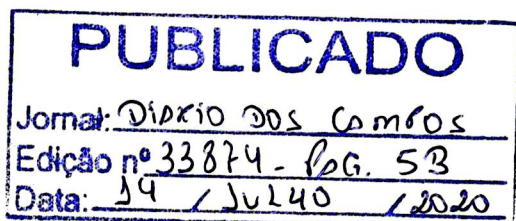 PUBLICADO
Jornal: DIÁRIO DOS CAMPOS
Edição nº 33874 - PAG. 5B
Data: 14 / JULHO / 2020